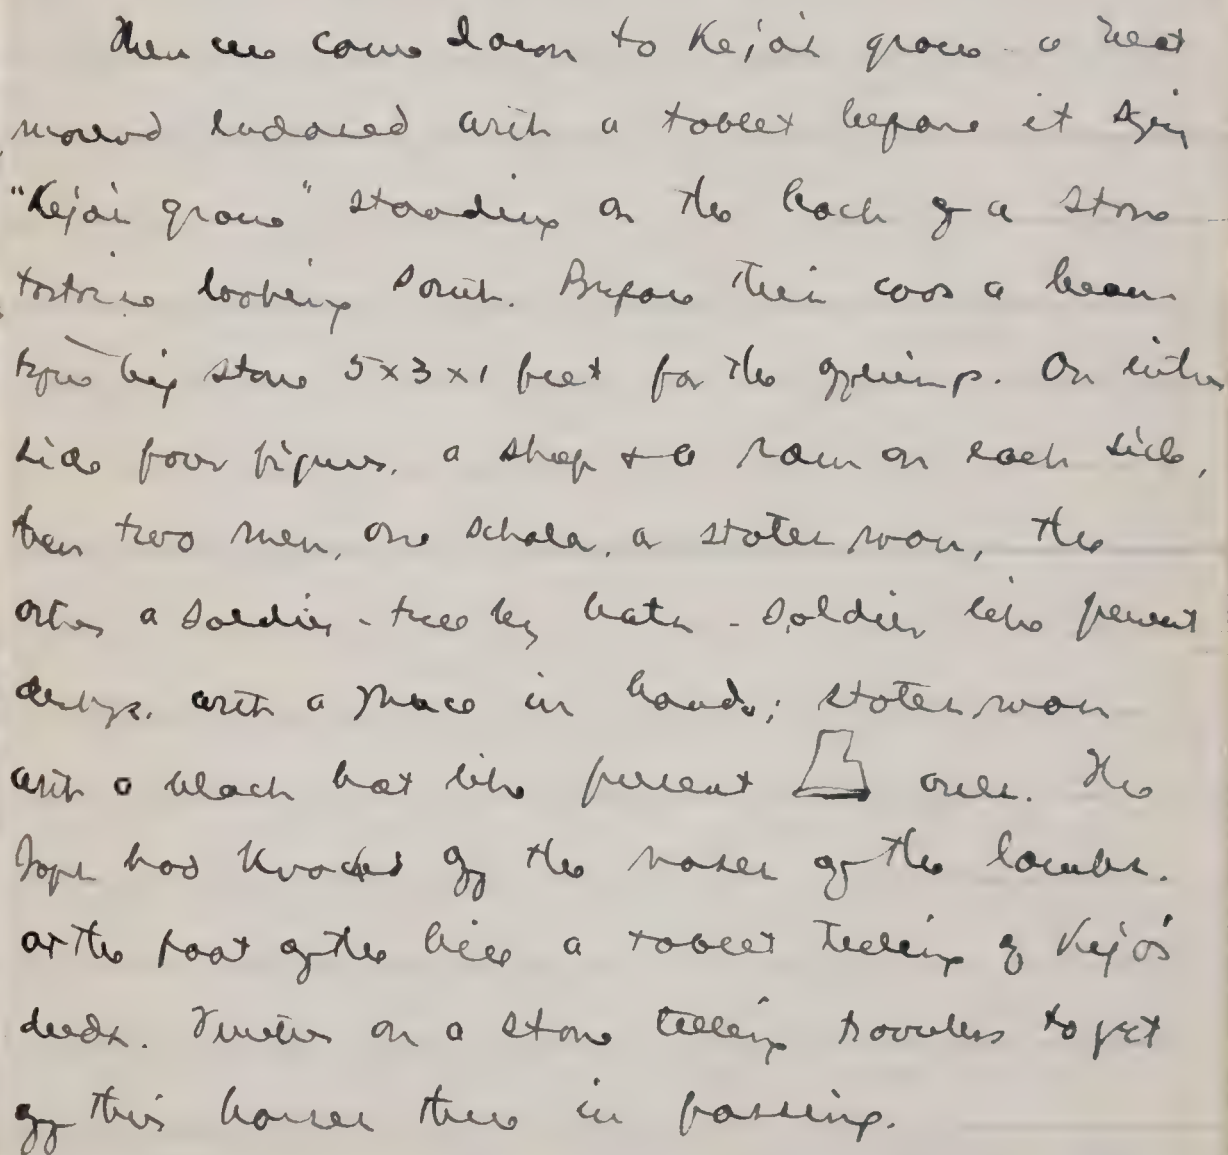 Then we came down to Kija's grave - a neat
mound enclosed with a tablet before it saying
"Kija's grave" standing on the back of a stone
tortoise looking south. Before this was a beau-
tiful big stone 5 x 3 x 1 feet for the offerings. On either
side four figures. a sheep + a ram on each side,
then two men, one scholar, a statesman, the
other a soldier - tree by hats - soldier like present
derbys. with a mace in hands; statesman
with a black hat like present ones. The
Japs had knocked off the noses of the lambs.
At the foot of the hill a tablet telling of Kija's
deeds. Further on a stone telling travelers to get
off their horses there in passing.